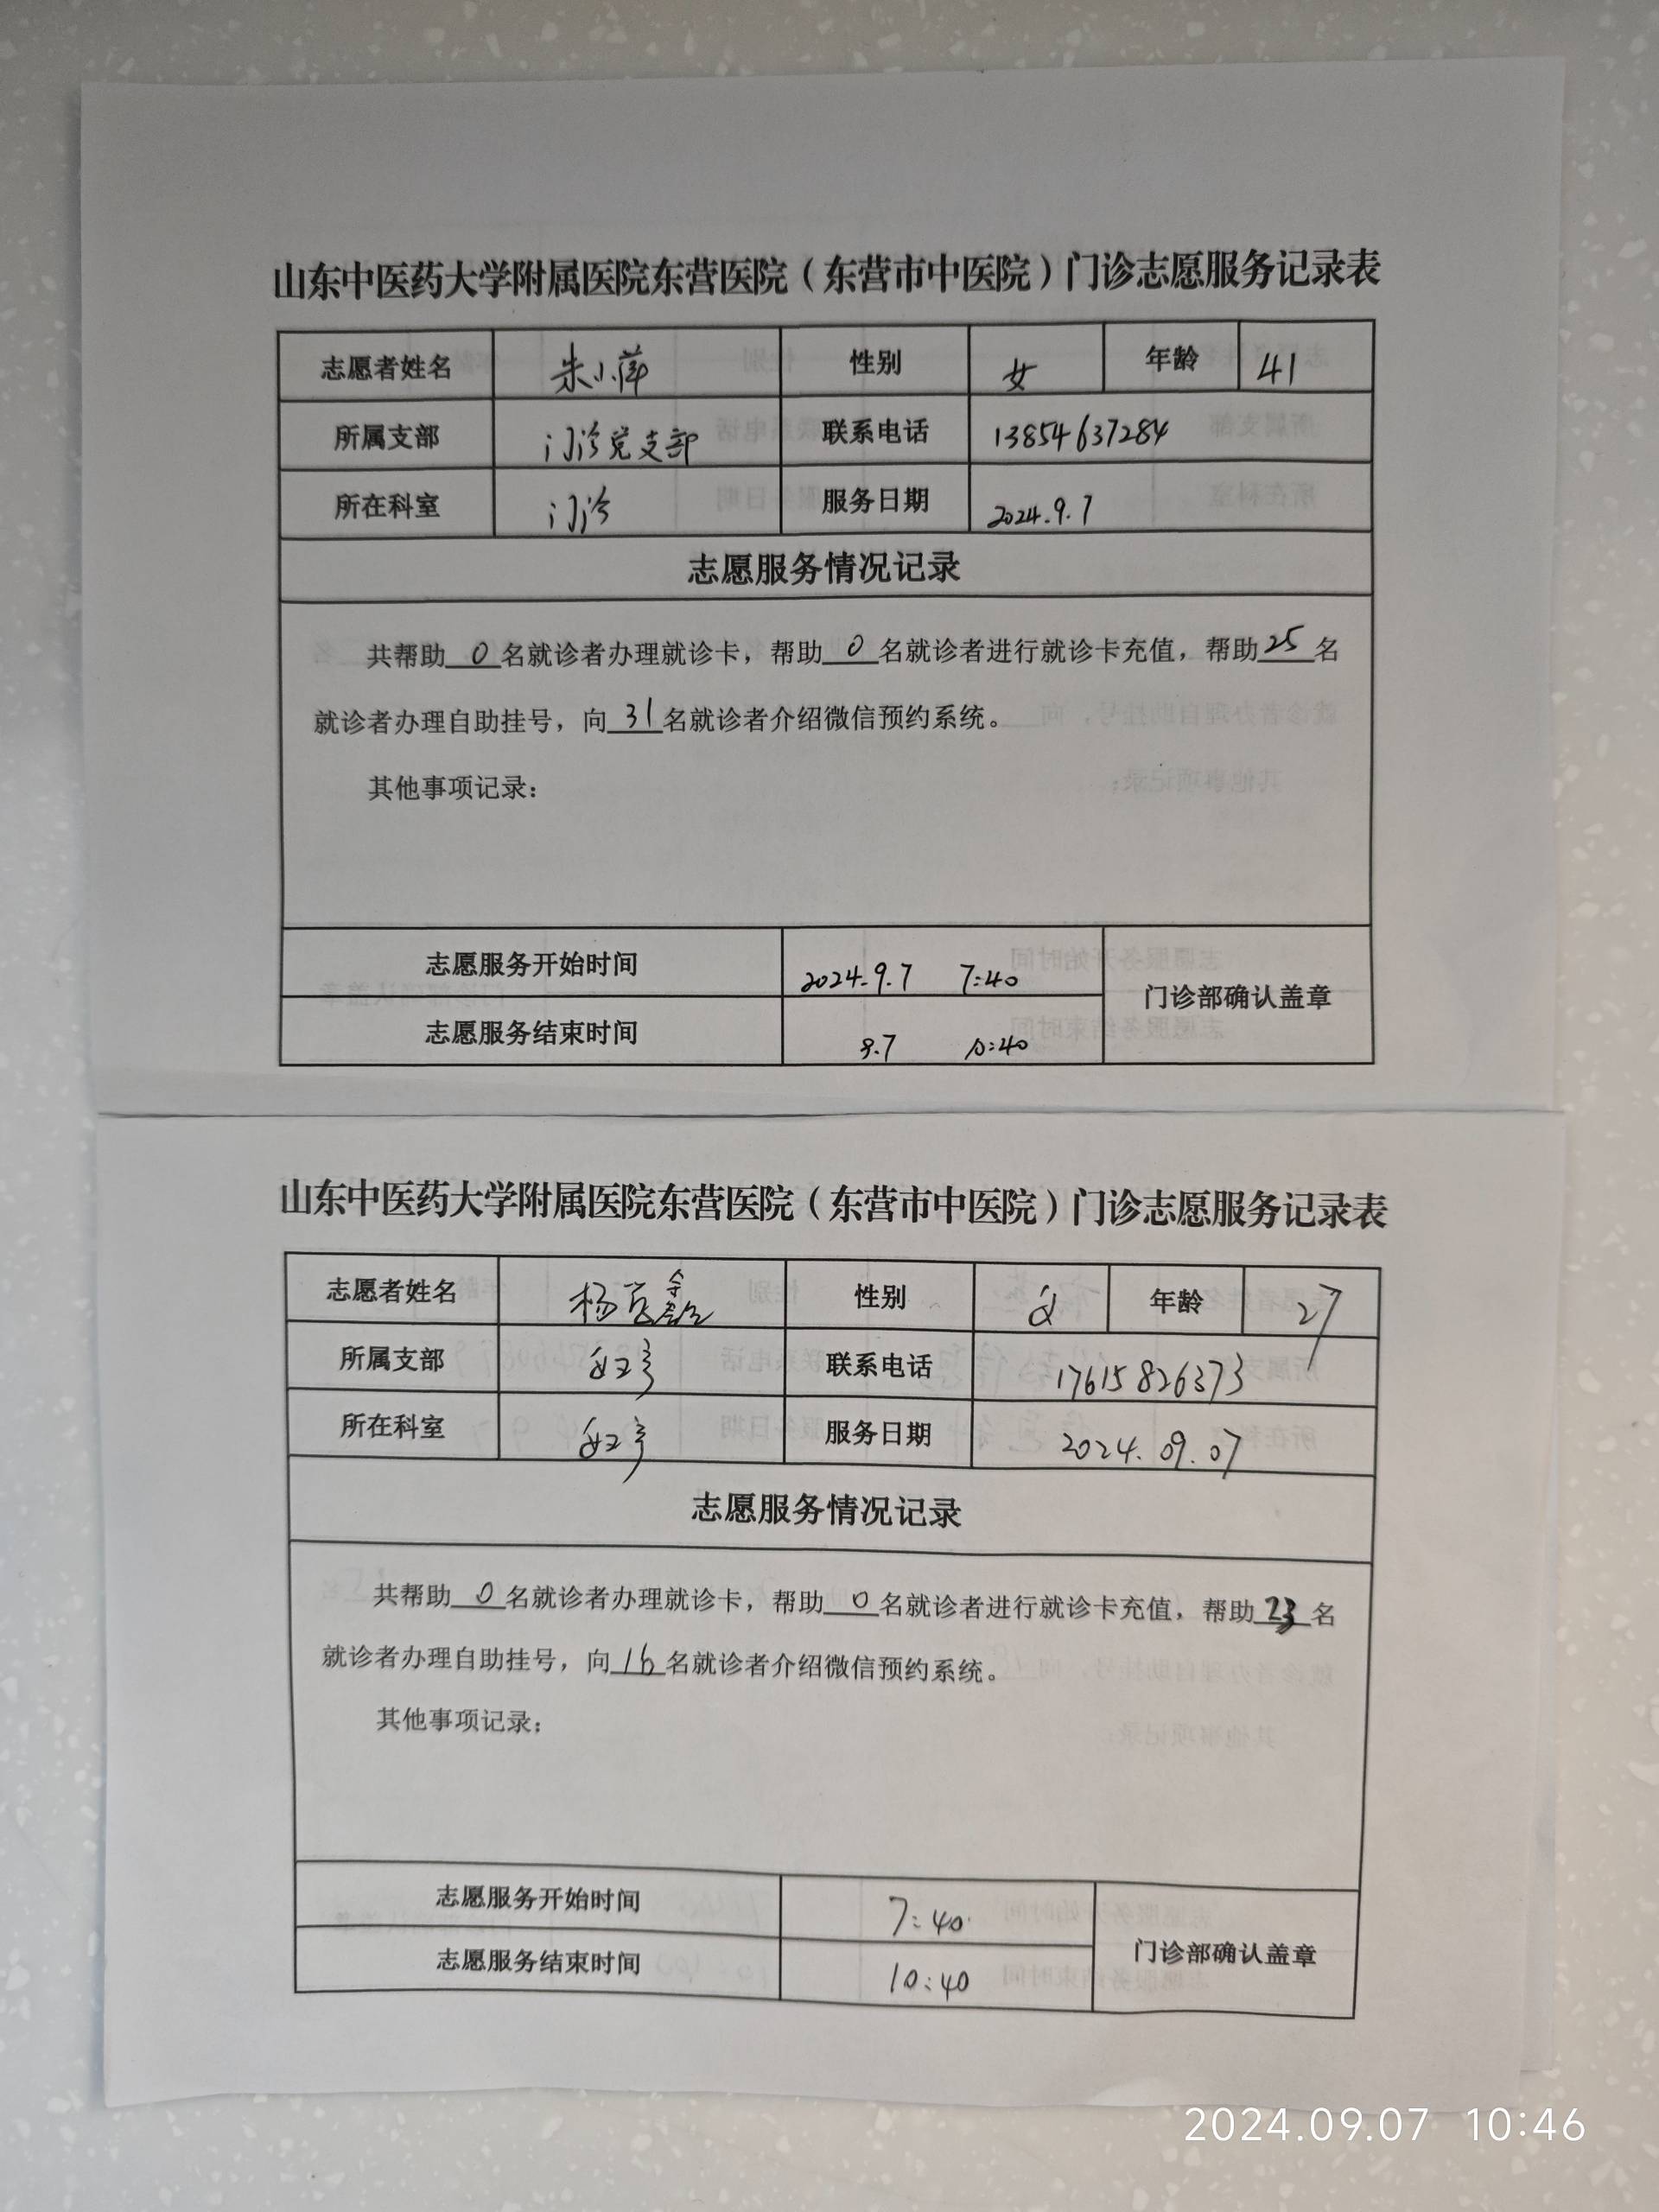 山东中医药大学附属医院东营医院（东营市中医院）门诊志愿服务记录表
志愿者姓名 朱小萍 性别 女 年龄 41
所属支部 门诊党支部 联系电话 13854637284
所在科室 门诊 服务日期 2024.9.7
志愿服务情况记录
共帮助 0 名就诊者办理就诊卡，帮助 0 名就诊者进行就诊卡充值，帮助 25 名
就诊者办理自助挂号，向 31 名就诊者介绍微信预约系统。
其他事项记录：
志愿服务开始时间 2024.9.7 7:40
门诊部确认盖章
志愿服务结束时间 9.7 10:40
山东中医药大学附属医院东营医院（东营市中医院）门诊志愿服务记录表
志愿者姓名 杨 鑫 性别 女 年龄 27
所属支部 联系电话 17615826373
所在科室 服务日期 2024.09.07
志愿服务情况记录
共帮助 0 名就诊者办理就诊卡，帮助 0 名就诊者进行就诊卡充值，帮助 23 名
就诊者办理自助挂号，向 16 名就诊者介绍微信预约系统。
其他事项记录：
志愿服务开始时间 7:40
门诊部确认盖章
志愿服务结束时间 10:40
2024.09.07 10:46